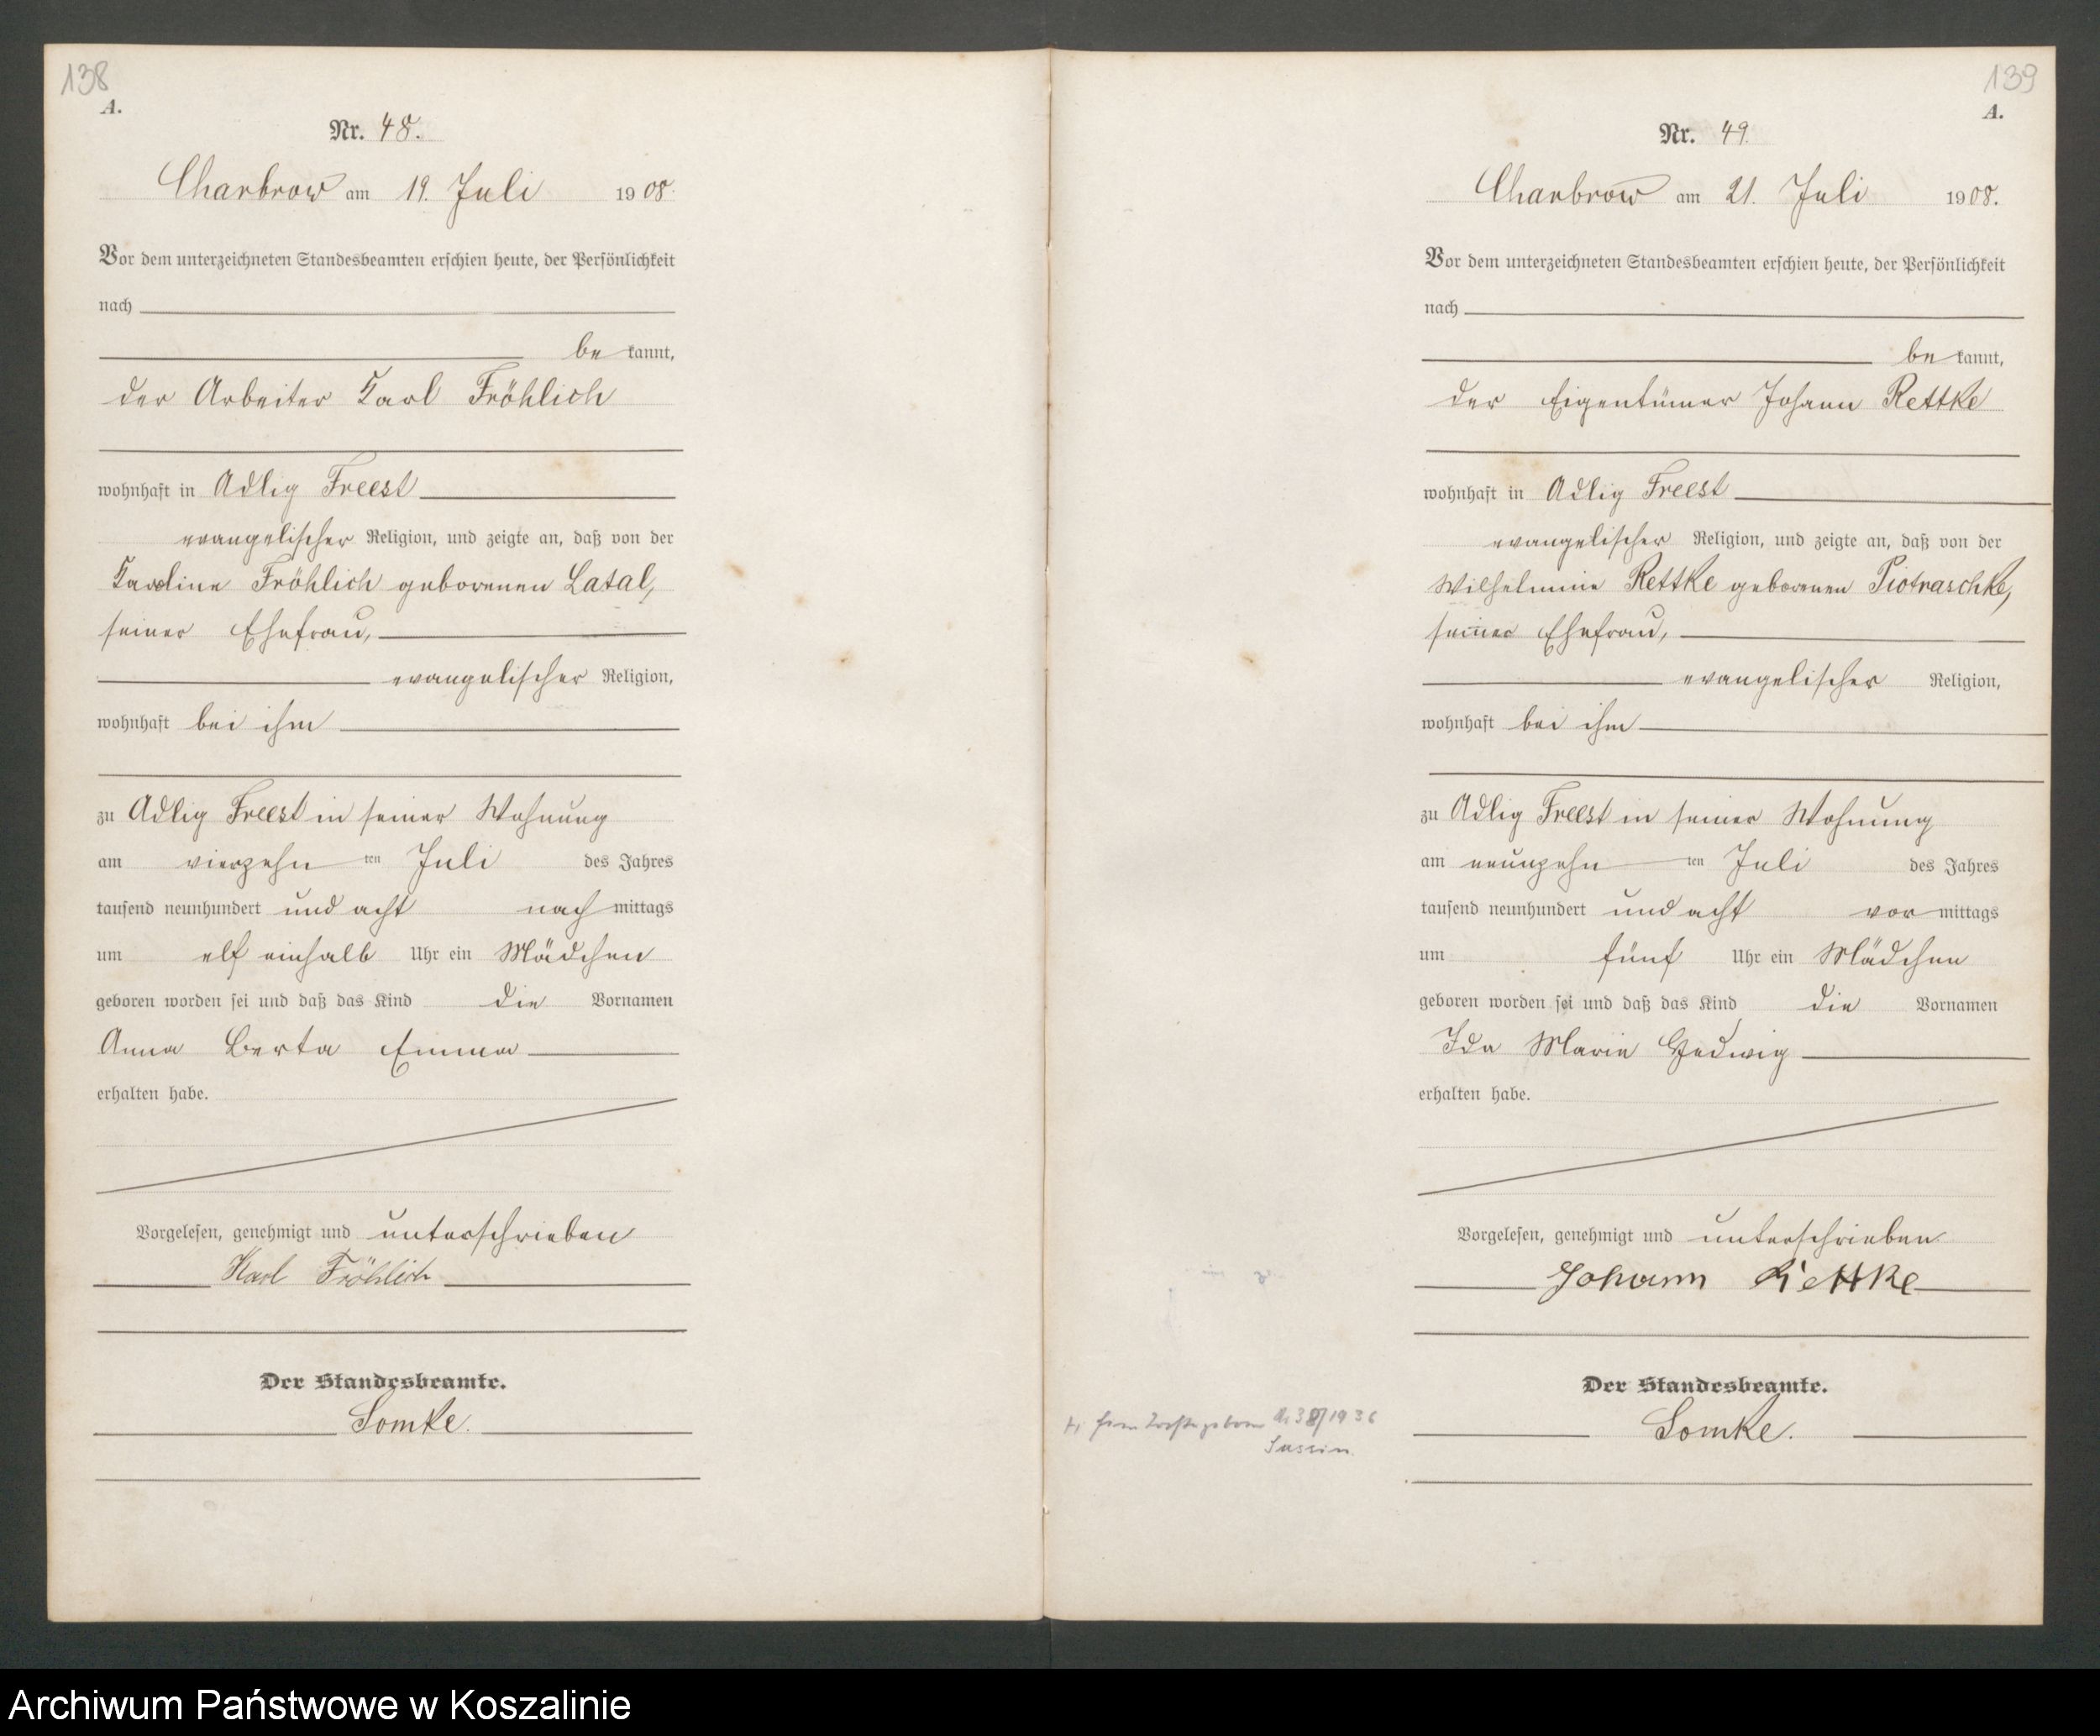 138
A.
Nr. 48.
Charbrow am 19. Juli 1908.
Vor dem unterzeichneten Standesbeamten erschien heute, der Persönlichkeit
nach
be kannt,
der Arbeiter Karl Fröhlich
wohnhaft in Adlig Freest
evangelischer Religion, und zeigte an, daß von der
Karoline Fröhlich geborenen Latal,
seiner Ehefrau,
evangelischer Religion,
wohnhaft bei ihm
zu Adlig Freest in seiner Wohnung
am vierzehn ten Juli des Jahres
tausend neunhundert und acht nach mittags
um elf einhalb Uhr ein Mädchen
geboren worden sei und daß das Kind die Vornamen
Anna Berta Emma
erhalten habe.
Vorgelesen, genehmigt und unterschrieben
Karl Fröhlich
Der Standesbeamte.
Somke.
139
A.
Nr. 49.
Charbrow am 21. Juli 1908.
Vor dem unterzeichneten Standesbeamten erschien heute, der Persönlichkeit
nach
be kannt,
der Eigentümer Johann Rettke
wohnhaft in Adlig Freest
evangelischer Religion, und zeigte an, daß von der
Wilhelmine Rettke geborenen Piotraschke,
seiner Ehefrau,
evangelischer Religion,
wohnhaft bei ihm
zu Adlig Freest in seiner Wohnung
am neunzehn ten Juli des Jahres
tausend neunhundert und acht vor mittags
um fünf Uhr ein Mädchen
geboren worden sei und daß das Kind die Vornamen
Ida Marie Hedwig
erhalten habe.
Vorgelesen, genehmigt und unterschrieben
Johann Rettke
Der Standesbeamte.
Somke.
geboren 1936
Sassin.
Archiwum Państwowe w Koszalinie